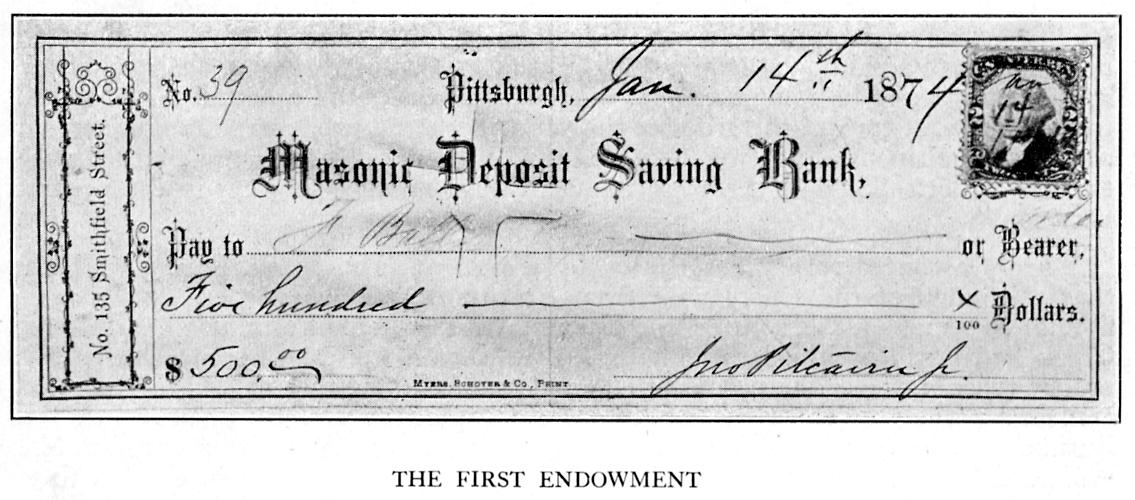 No. 135 Smithfield Street.
No. 39 Pittsburgh, Jan. 14th 1874
Masonic Deposit Saving Bank,
Pay to F. Ball or Bearer,
order
Five hundred x/100 Dollars.
$ 500.00 Jno Pitcairn Jr.
MYERS, SCHOYER & CO., PRINT.
Jan 14
THE FIRST ENDOWMENT